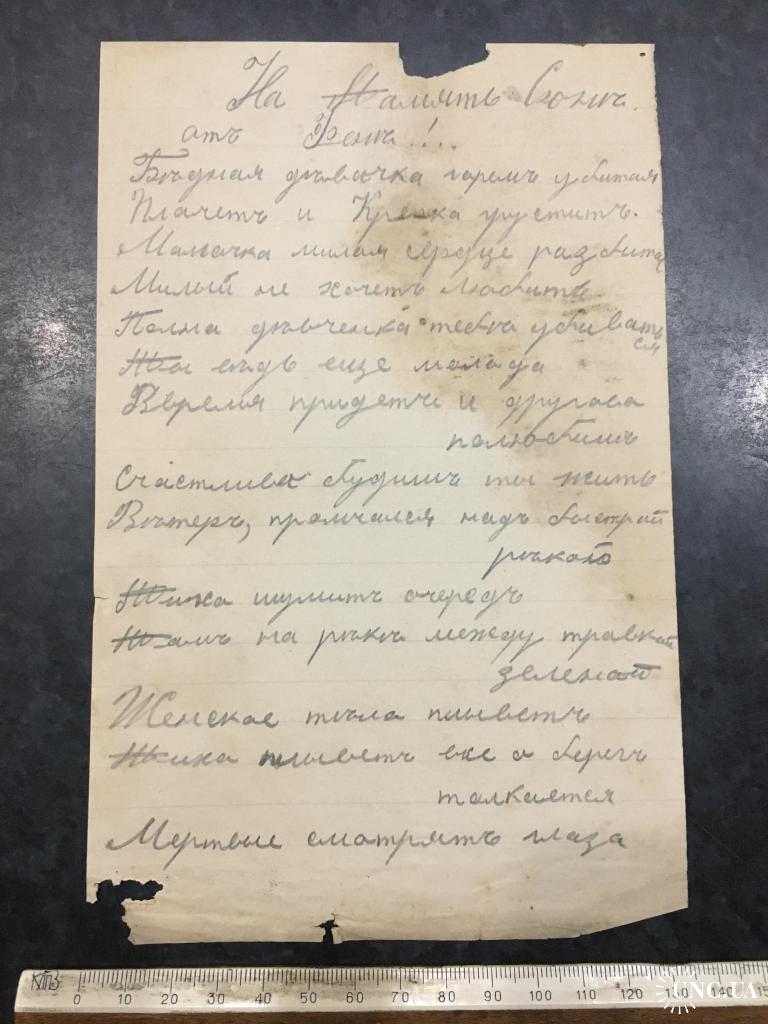 На Память Сонѣ.
отъ Фени!..
Бѣдная дѣвачка горемъ убитая
Плачетъ и Крепка груститъ.
Мамачка милая сердце разбита
Милый не хочетъ любить
Полна дѣвченка тебѣ убивать
ся
Ты вѣдь еще молода
Время придетъ и другова
полюбишъ
Счастлива будишъ ты жить
Вѣтеръ, промчался надъ быстрой
рѣкой
Тихо шумитъ очередъ
Тамъ на рѣкѣ между травкой
зеленой
Женское тѣла плыветъ
Тихо плыветъ все о берегъ
толкается
Мертвые смотрятъ глаза
0 10 20 30 40 50 60 70 80 90 100 110 120 130 140
UNC.UA